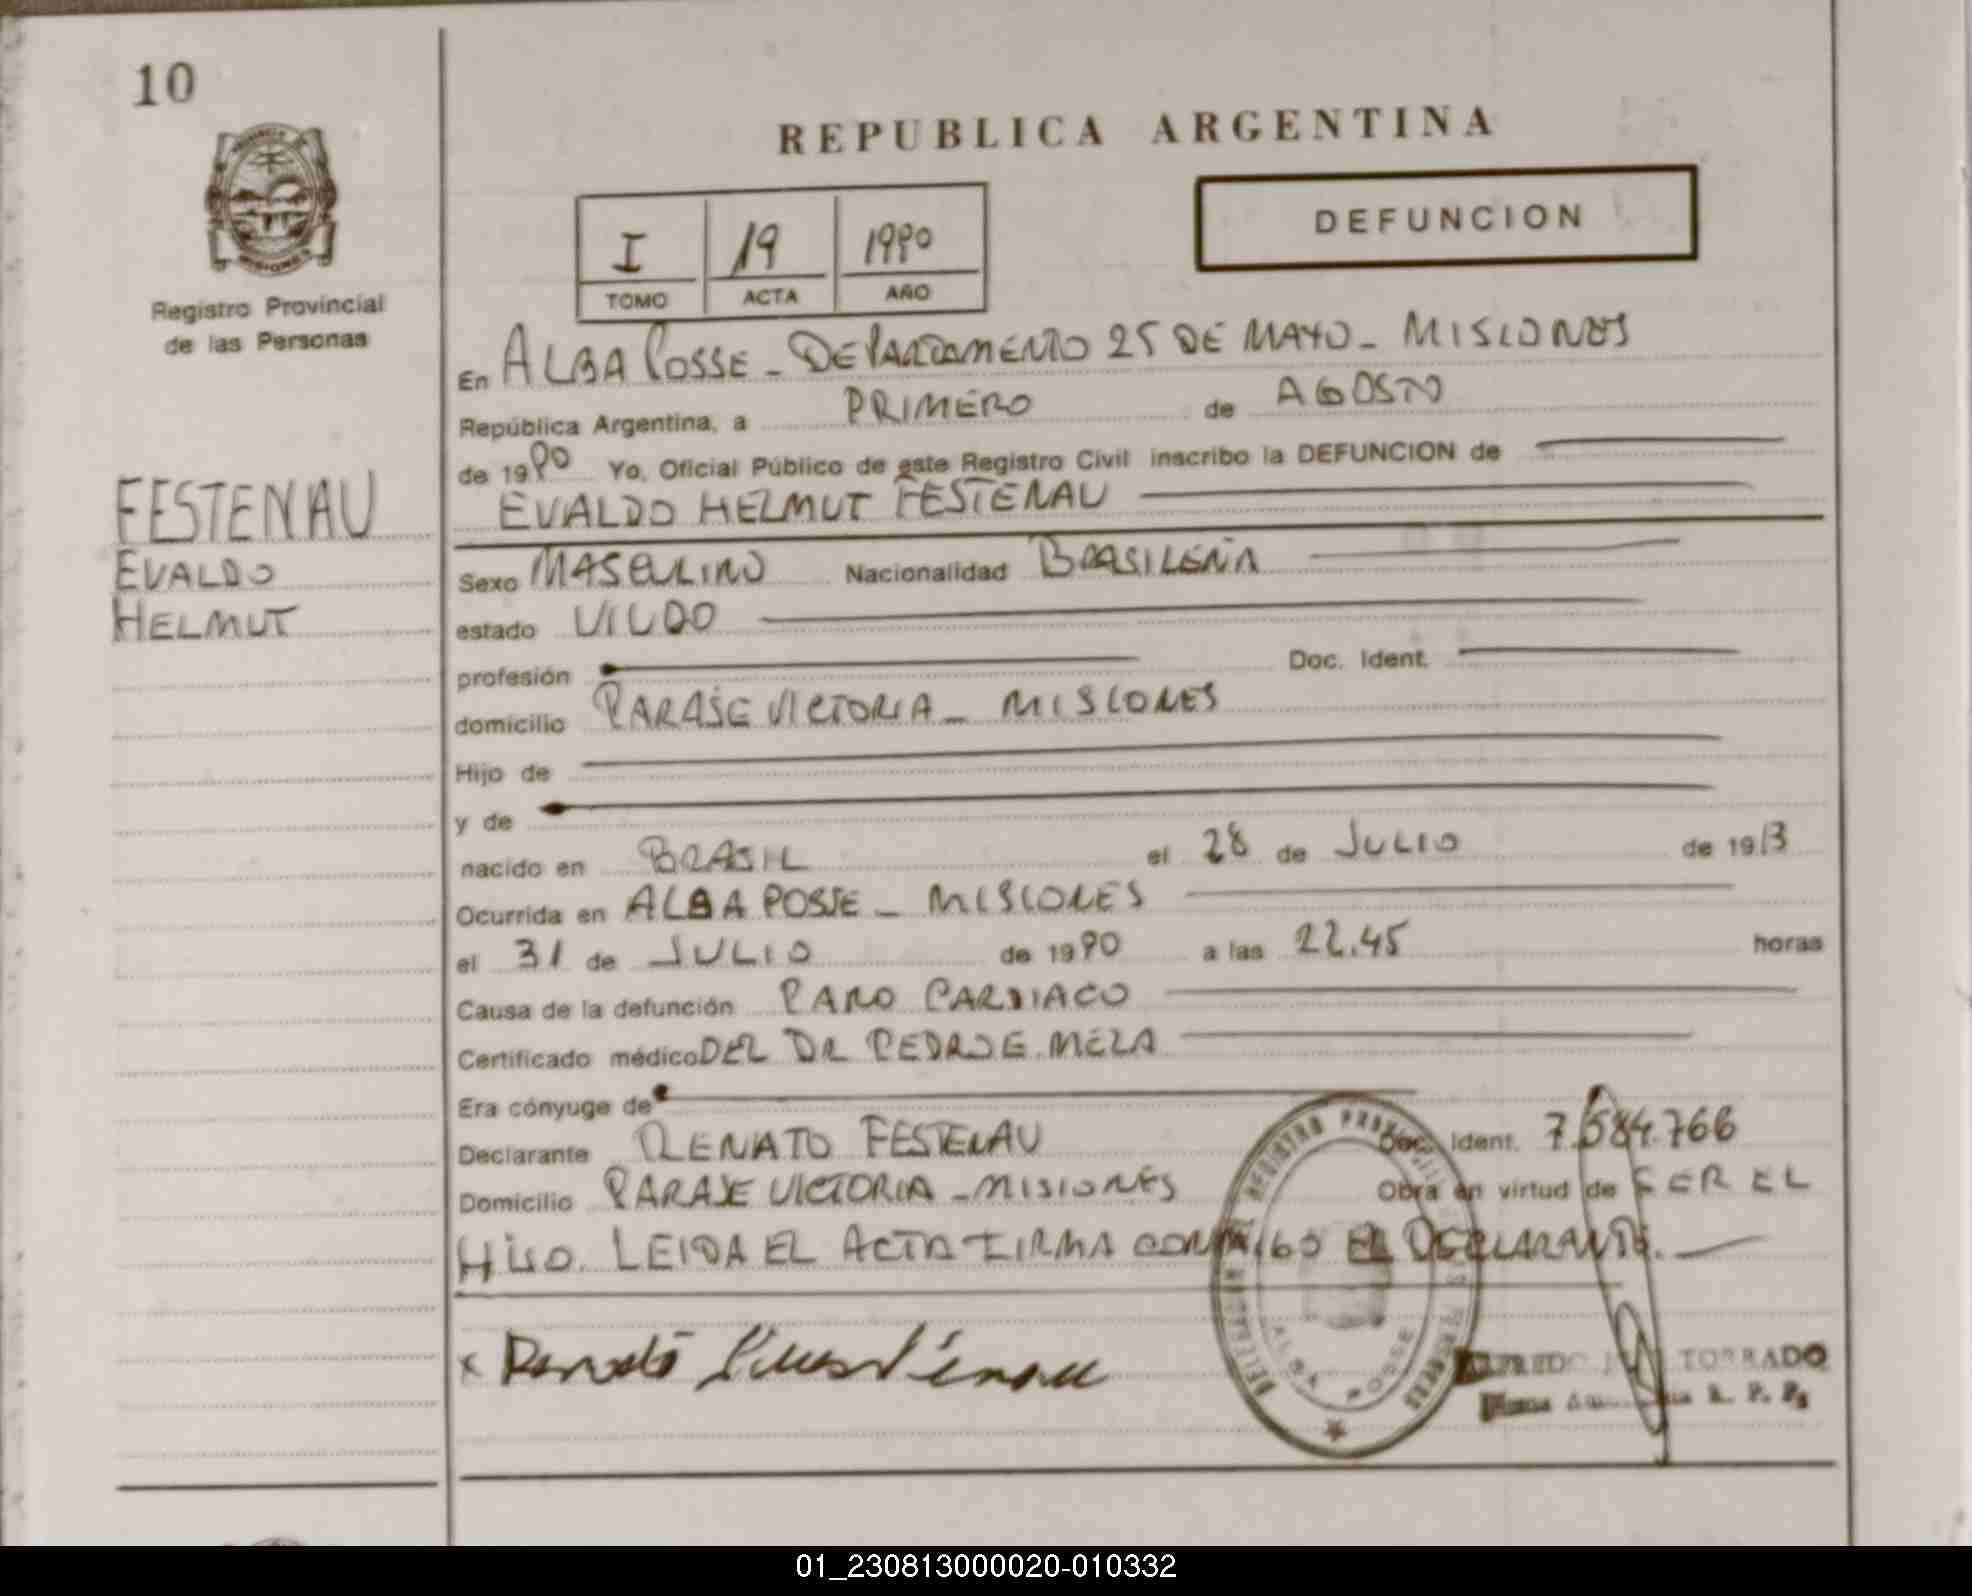 10
REPUBLICA ARGENTINA
DEFUNCION
I 19 1990
TOMO ACTA AÑO
MISIONES
Registro Provincial
de las Personas
En ALBA POSSE - DEPARTAMENTO 25 DE MAYO - MISIONES
República Argentina, a PRIMERO de AGOSTO
de 1990 Yo, Oficial Público de este Registro Civil inscribo la DEFUNCION de
EVALDO HELMUT FESTENAU
FESTENAU
EVALDO
HELMUT
Sexo MASCULINO Nacionalidad BRASILEÑA
estado VIUDO
profesión Doc. Ident.
domicilio PARAJE VICTORIA - MISIONES
Hijo de
y de
nacido en BRASIL el 28 de JULIO de 1913
Ocurrida en ALBA POSSE - MISIONES
el 31 de JULIO de 1990 a las 22.45 horas
Causa de la defunción PARO CARDIACO
Certificado médico DEL DR PEDRO E. MEZA
Era cónyuge de
Declarante RENATO FESTENAU Doc. Ident. 7.584.766
Domicilio PARAJE VICTORIA - MISIONES Obra en virtud de SER EL
HIJO. LEIDA EL ACTA FIRMA CONMIGO EL DECLARANTE.
x Renato
DELEGACION REGISTRO PERSONAS
ALBA POSSE
ALFREDO TORRADO
R. P. Ps
01_230813000020-010332